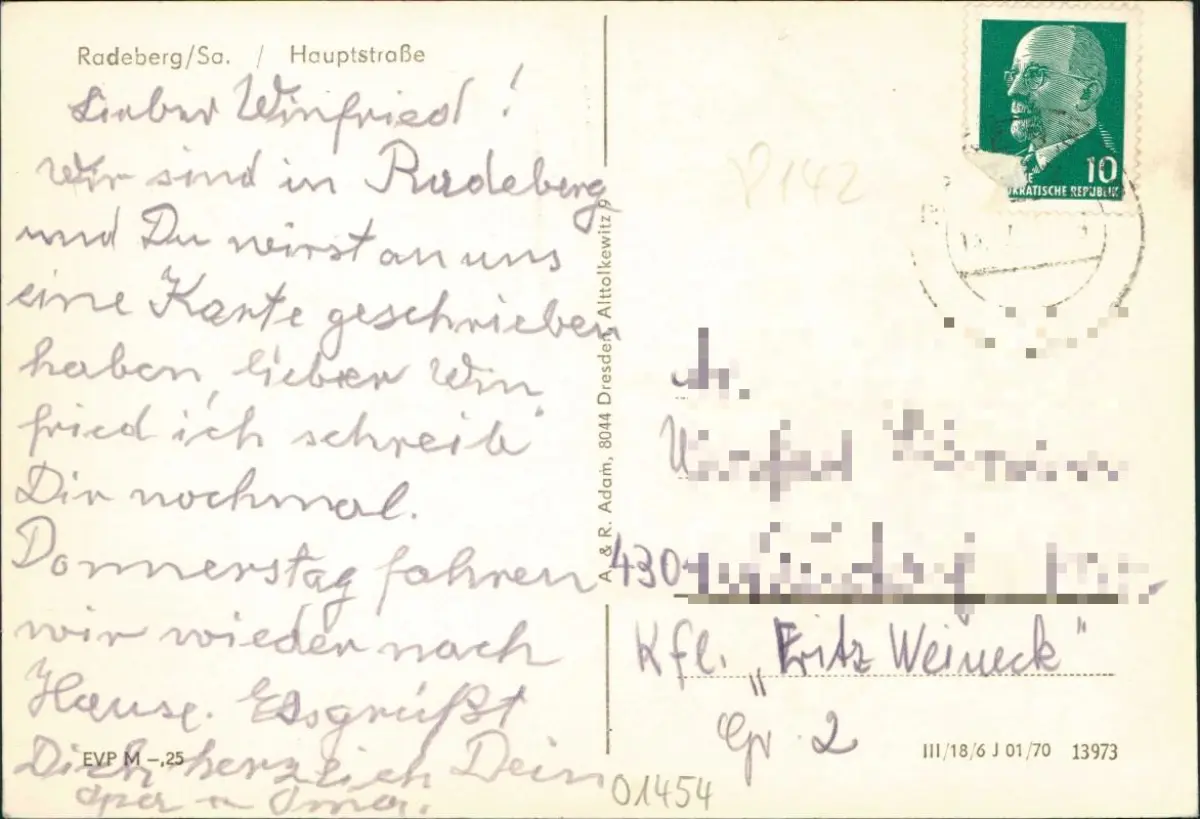 Radeberg/Sa. / Hauptstraße
Lieber Winfried!
Wir sind in Radeberg
und Du wirst an uns
eine Karte geschrieben
haben, lieber Win
fried ich schreib
Dir nochmal.
Donnerstag fahren
wir wieder nach
Hause. Es grüßt
Dich herzlich Dein
Opa u Oma.
EVP M –,25
A. & R. Adam, 8044 Dresden, Alttolkewitz 9
10
KRATISCHE REPUBLIK
P142
430
Kfl. „Fritz Weineck"
Gr. 2
III/18/6 J 01/70 13973
01454